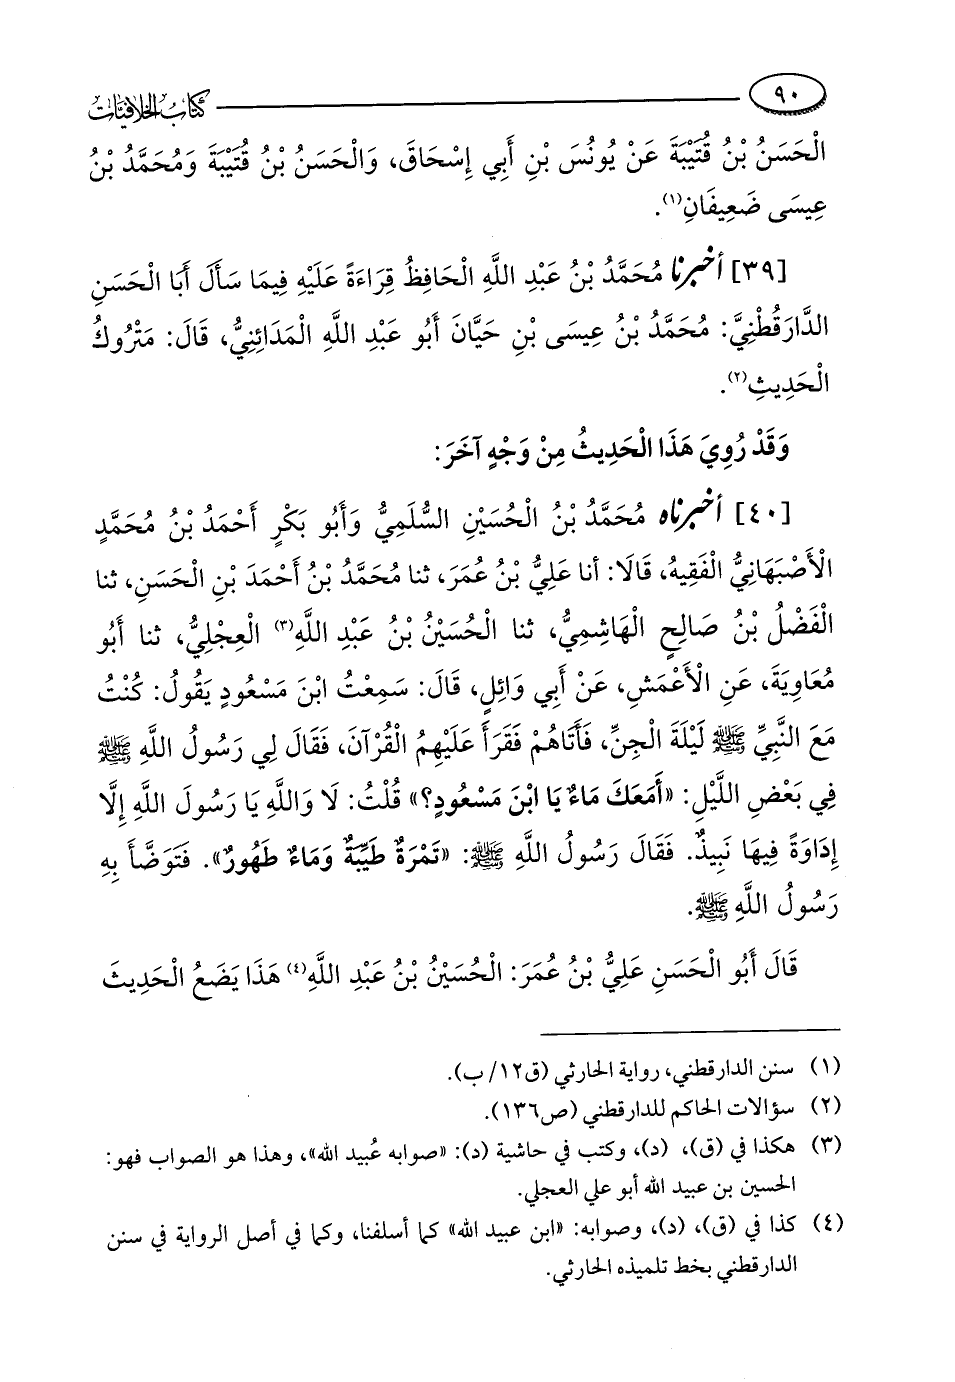 ٩٠
كتاب الخلافيات
الْحَسَنُ بْنُ قُتَيْبَةَ عَنْ يُونُسَ بْنِ أَبِي إِسْحَاقَ، وَالْحَسَنُ بْنُ قُتَيْبَةَ وَمُحَمَّدُ بْنُ
عِيسَى ضَعِيفَانِ(١).
[٣٩] أخبرنا مُحَمَّدُ بْنُ عَبْدِ اللَّهِ الْحَافِظُ قِرَاءَةً عَلَيْهِ فِيمَا سَأَلَ أَبَا الْحَسَنِ
الدَّارَقُطْنِيَّ: مُحَمَّدُ بْنُ عِيسَى بْنِ حَيَّانَ أَبُو عَبْدِ اللَّهِ الْمَدَائِنِيُّ، قَالَ: مَتْرُوكُ
الْحَدِيثِ(٢).
وَقَدْ رُوِيَ هَذَا الْحَدِيثُ مِنْ وَجْهٍ آخَرَ:
[٤٠] أخبرناه مُحَمَّدُ بْنُ الْحُسَيْنِ السُّلَمِيُّ وَأَبُو بَكْرٍ أَحْمَدُ بْنُ مُحَمَّدٍ
الْأَصْبَهَانِيُّ الْفَقِيهُ، قَالَا: أنا عَلِيُّ بْنُ عُمَرَ، ثنا مُحَمَّدُ بْنُ أَحْمَدَ بْنِ الْحَسَنِ، ثنا
الْفَضْلُ بْنُ صَالِحٍ الْهَاشِمِيُّ، ثنا الْحُسَيْنُ بْنُ عَبْدِ اللَّهِ(٣) الْعِجْلِيُّ، ثنا أَبُو
مُعَاوِيَةَ، عَنِ الْأَعْمَشِ، عَنْ أَبِي وَائِلٍ، قَالَ: سَمِعْتُ ابْنَ مَسْعُودٍ يَقُولُ: كُنْتُ
مَعَ النَّبِيِّ ﷺ لَيْلَةَ الْجِنِّ، فَأَتَاهُمْ فَقَرَأَ عَلَيْهِمُ الْقُرْآنَ، فَقَالَ لِي رَسُولُ اللَّهِ ﷺ
فِي بَعْضِ اللَّيْلِ: «أَمَعَكَ مَاءٌ يَا ابْنَ مَسْعُودٍ؟» قُلْتُ: لَا وَاللَّهِ يَا رَسُولَ اللَّهِ إِلَّا
إِدَاوَةً فِيهَا نَبِيذٌ. فَقَالَ رَسُولُ اللَّهِ ﷺ: «تَمْرَةٌ طَيِّبَةٌ وَمَاءٌ طَهُورٌ». فَتَوَضَّأَ بِهِ
رَسُولُ اللَّهِ ﷺ.
قَالَ أَبُو الْحَسَنِ عَلِيُّ بْنُ عُمَرَ: الْحُسَيْنُ بْنُ عَبْدِ اللَّهِ(٤) هَذَا يَضَعُ الْحَدِيثَ
(١) سنن الدارقطني، رواية الحارثي (ق١٢/ ب).
(٢) سؤالات الحاكم للدارقطني (ص١٣٦).
(٣) هكذا في (ق)، (د)، وكتب في حاشية (د): «صوابه عُبيد الله»، وهذا هو الصواب فهو:
الحسين بن عبيد الله أبو علي العجلي.
(٤) كذا في (ق)، (د)، وصوابه: «ابن عبيد الله» كما أسلفنا، وكما في أصل الرواية في سنن
الدارقطني بخط تلميذه الحارثي.